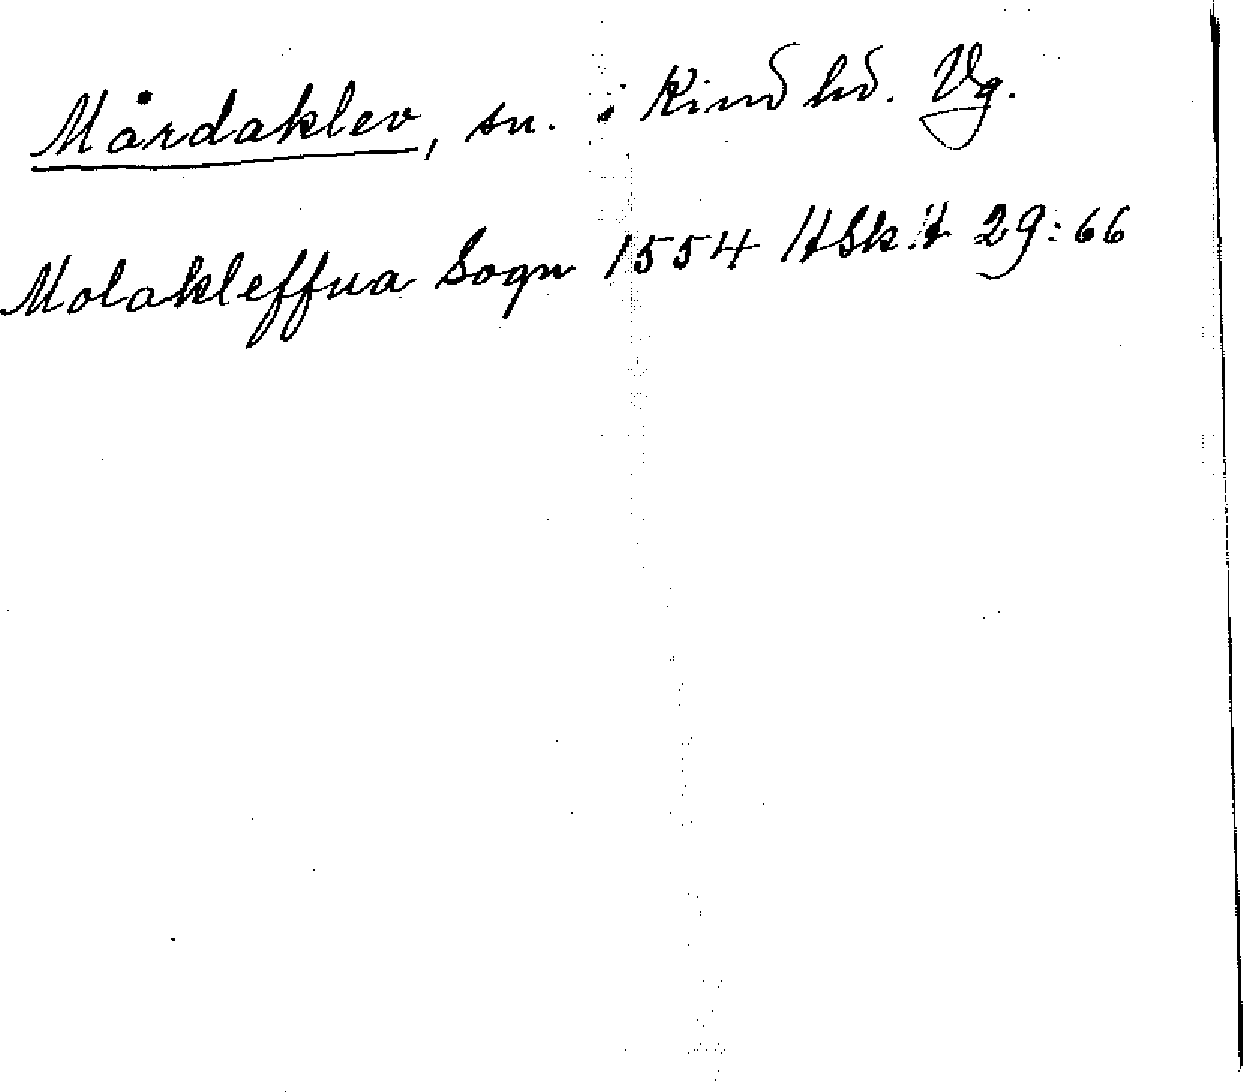 Mårdaklev, sn. i Kind hd. Vg.
Molakleffua Sogn 1554 HSkH 29:66